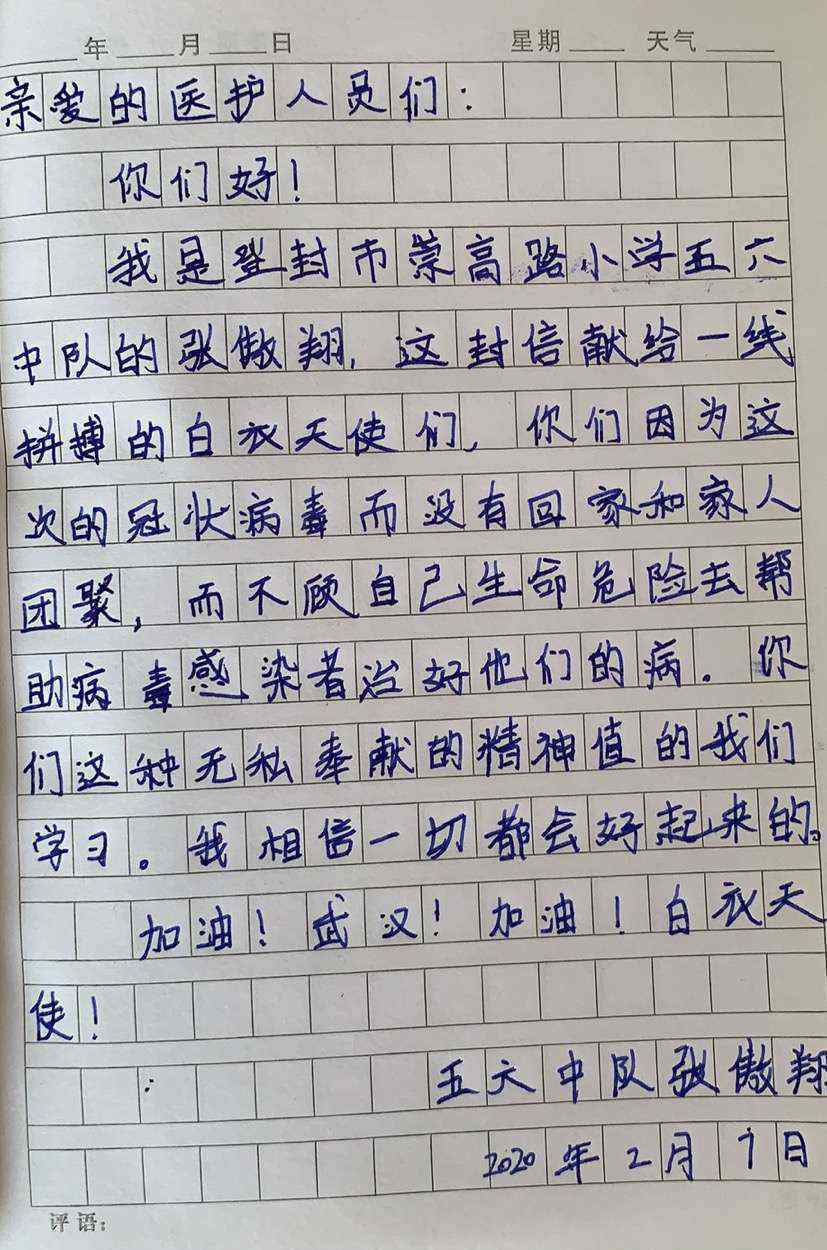 年 月 日 星期 天气
亲爱的医护人员们：
你们好！
我是登封市崇高路小学五六
中队的张傲翔，这封信献给一线
拼搏的白衣天使们，你们因为这
次的冠状病毒而没有回家和家人
团聚，而不顾自己生命危险去帮
助病毒感染者治好他们的病。你
们这种无私奉献的精神值的我们
学习。我相信一切都会好起来的。
加油！武汉！加油！白衣天
使！
五六中队张傲翔
2020年2月7日
评语：